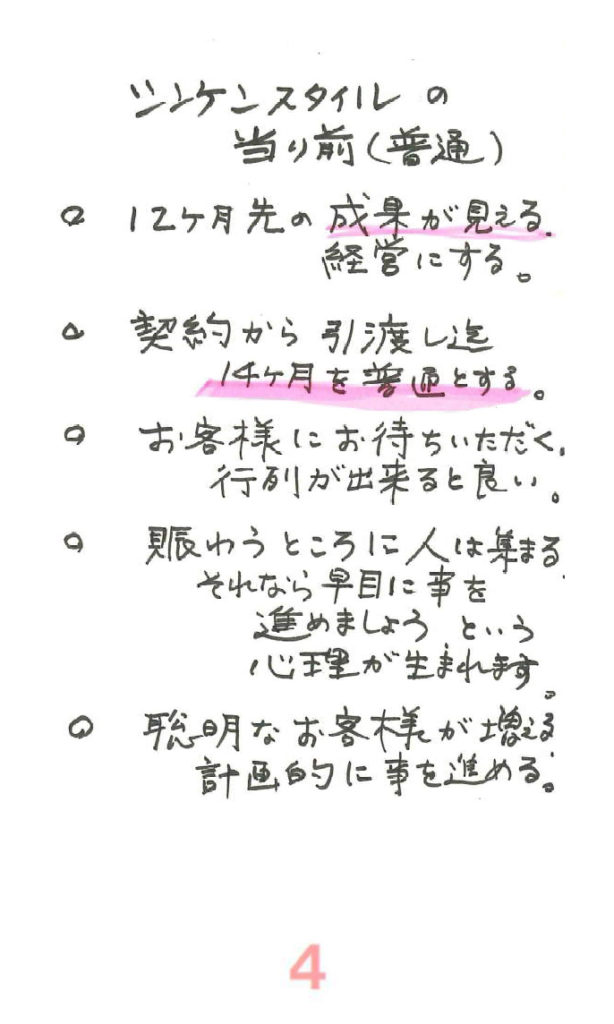 シンケンスタイルの
当り前(普通)
○ 12ヶ月先の成果が見える.
経営にする。
○ 契約から引渡し迄
14ヶ月を普通とする。
○ お客様にお待ちいただく.
行列が出来ると良い。
○ 賑わうところに人は集まる
それなら早目に事を
進めましょうという
心理が生まれます。
○ 聡明なお客様が増える
計画的に事を進める。
4